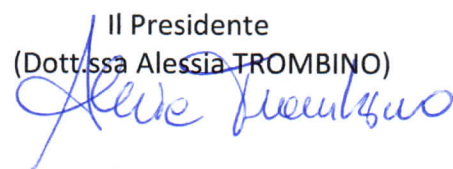 Il Presidente
(Dott.ssa Alessia TROMBINO)
Alessia Trombino